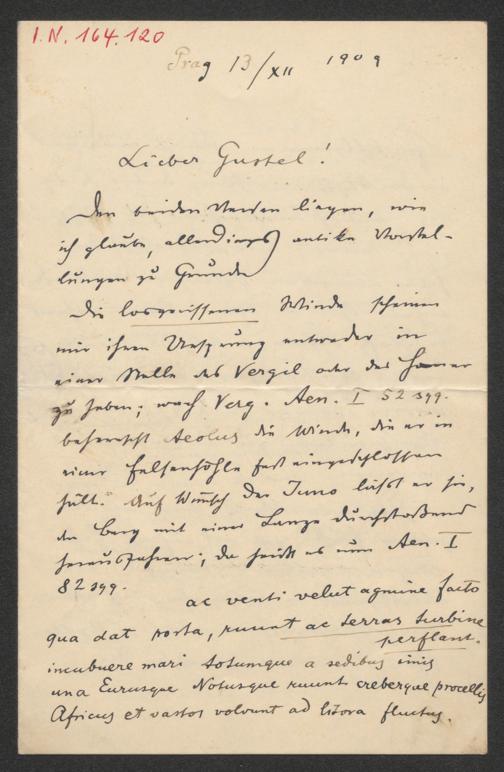 I.N. 164.120
Prag 13/XII 1909
Lieber Gustel!
Den beiden liegen, wie
ich glaube, allerdings antike Vorstel-
lungen zu Grunde
Die losgerissenen Winde scheinen
mir ihren Ursprung entweder in
einer Stelle des Vergil oder des Homer
zu haben; nach Verg. Aen. I 52 sqq.
beherrscht Aeolus die Winde, die er in
einer Felsenhöhle fest eingeschlossen
hält. Auf Wunsch der Juno läßt er sie,
den Berg mit einer Lanze durchstoßend
herausfahren; da heißt es nun Aen. I
82 sqq.
ac venti velut agmine facto
qua dat porta, ruunt ac terras turbine
perflant.
incubuere mari totumque a sedibus imis
una Eurusque Notusque ruunt creberque procellis
Africus et vastos volvunt ad litora fluctus.